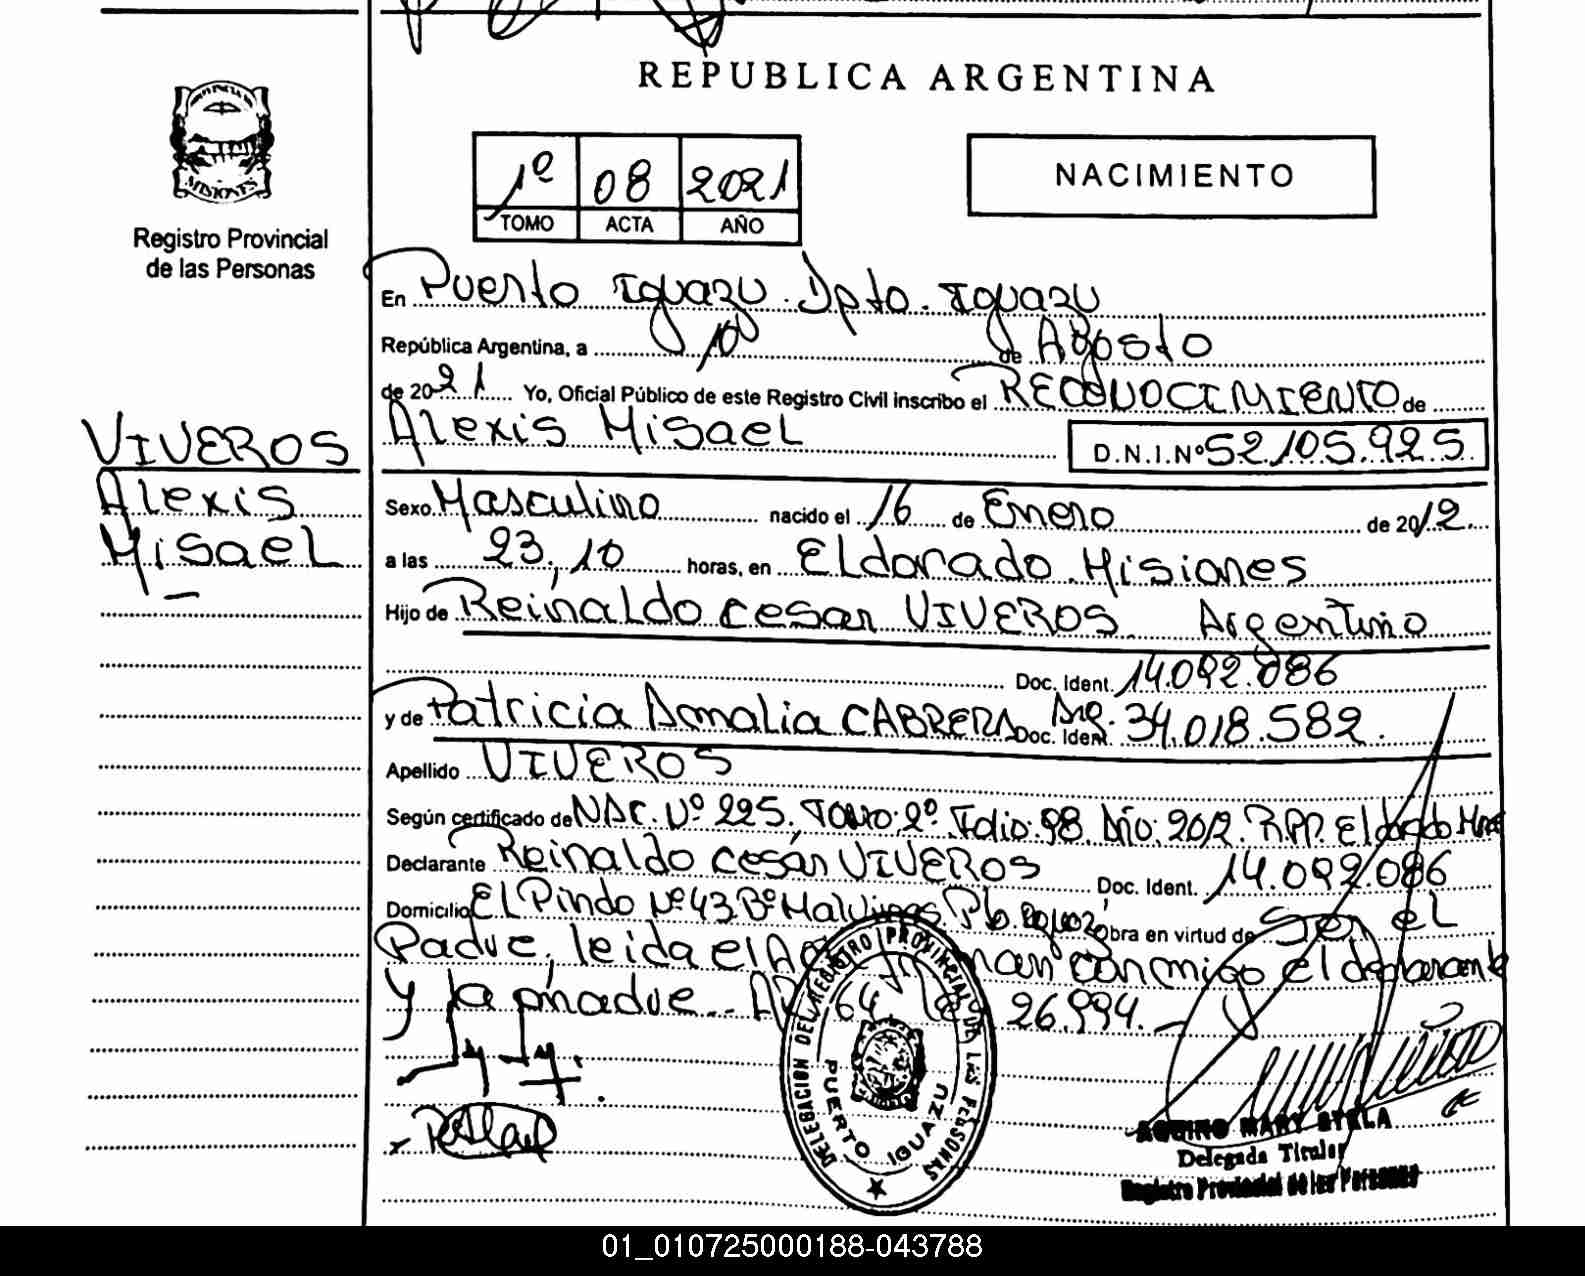 REPUBLICA ARGENTINA
PROVINCIA DE
MISIONES
Registro Provincial
de las Personas
1º 08 2021
TOMO ACTA AÑO
NACIMIENTO
En Puerto Iguazu. Dpto. Iguazu
República Argentina, a 10 de Agosto
de 2021 Yo, Oficial Público de este Registro Civil inscribo el RECONOCIMIENTO de
Alexis Misael D.N.I.Nº 52.105.925
VIVEROS
Alexis
Misael
Sexo Masculino nacido el 16 de Enero de 2012
a las 23,10 horas, en Eldorado Misiones
Hijo de Reinaldo cesar VIVEROS Argentino
Doc. Ident. 14.092.086
y de Patricia Amalia CABRERA Arg. Doc. Ident. 34.018.582.
Apellido VIVEROS
Según certificado de NAC. Nº 225. TOMO: 2º. Folio: 98. Año: 2012. R.P.P. Eldorado Mnes
Declarante Reinaldo cesar VIVEROS Doc. Ident. 14.092.086
Domicilio El Pindo Nº 43 Bº Malvinas. Pto. Iguazu Obra en virtud de Ser el
Padre, leida el conmigo el declarante
y la madre.. 64 26.994.-
DELEGACION DEL REGISTRO PROVINCIAL DE LAS PERSONAS
PUERTO IGUAZU
AQUINO MARY STELA
Delegada Titular
Registro Provincial de las Personas
01_010725000188-043788